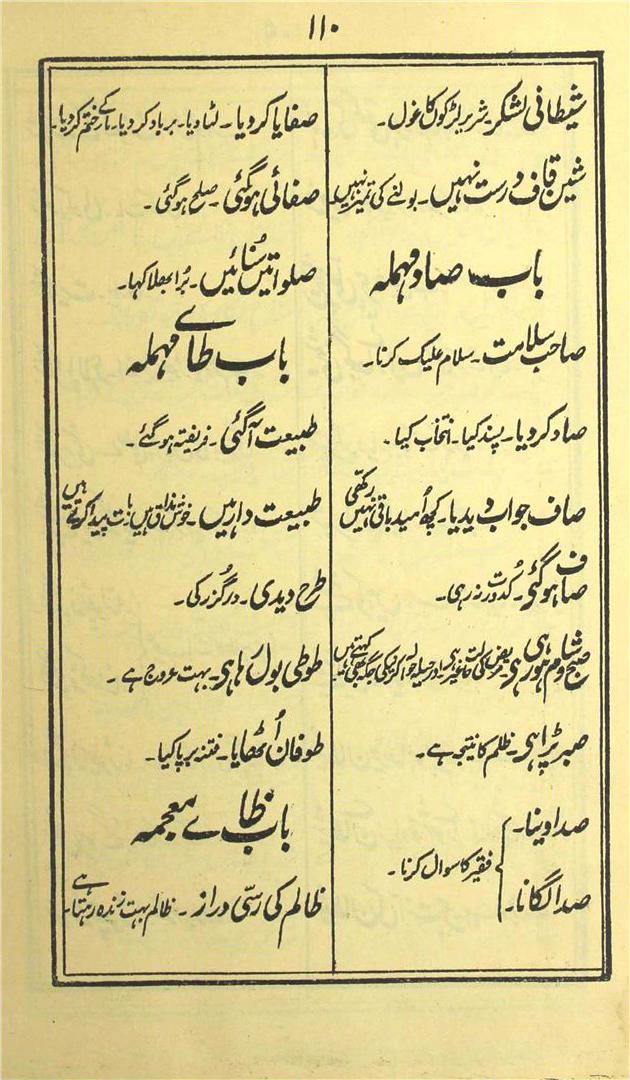 ۱۱۰
شیطانی لشکر۔ شریر لڑکوں کا غول۔
شین قاف درست نہیں۔ بولنے کی تمیز نہیں۔
باب صاد مہملہ
صاحب سلامت۔ سلام علیک کرنا۔
صاد کر دیا۔ پسند کیا۔ انتخاب کیا۔
صاف جواب دیدیا۔ کچھ اُمید باقی نہیں رکھی
صاف ہو گئی۔ کدورت نہ رہی۔
صبح و شام ہو رہی ہی۔ مریض کی حالت غیر ہی۔ اور حیلہ حوالہ کرنیکی جگہ بھی کہتے ہیں
صبر پڑا ہی۔ ظلم کا نتیجہ ہے۔
صدا دینا۔
صدا لگانا۔
فقیر کا سوال کرنا۔
صفایا کر دیا۔ لٹا دیا۔ برباد کر دیا۔ مار کے ختم کر دیا۔
صفائی ہو گئی۔ صلح ہو گئی۔
صلواتیں سُنائیں۔ بُرا بھلا کہا۔
باب طاے مہملہ
طبیعت آ گئی۔ فریفتہ ہو گئے۔
طبیعت دار ہیں۔ خوش مذاق ہیں بات پیدا کرتے ہیں
طرح دیدی۔ درگُزر کی۔
طوطی بول رہا ہی۔ بہت عروج ہے۔
طوفان اُٹھایا۔ فتنہ برپا کیا۔
باب ظاے معجمہ
ظالم کی رسّی دراز۔ ظالم بہت زندہ رہتا ہے۔